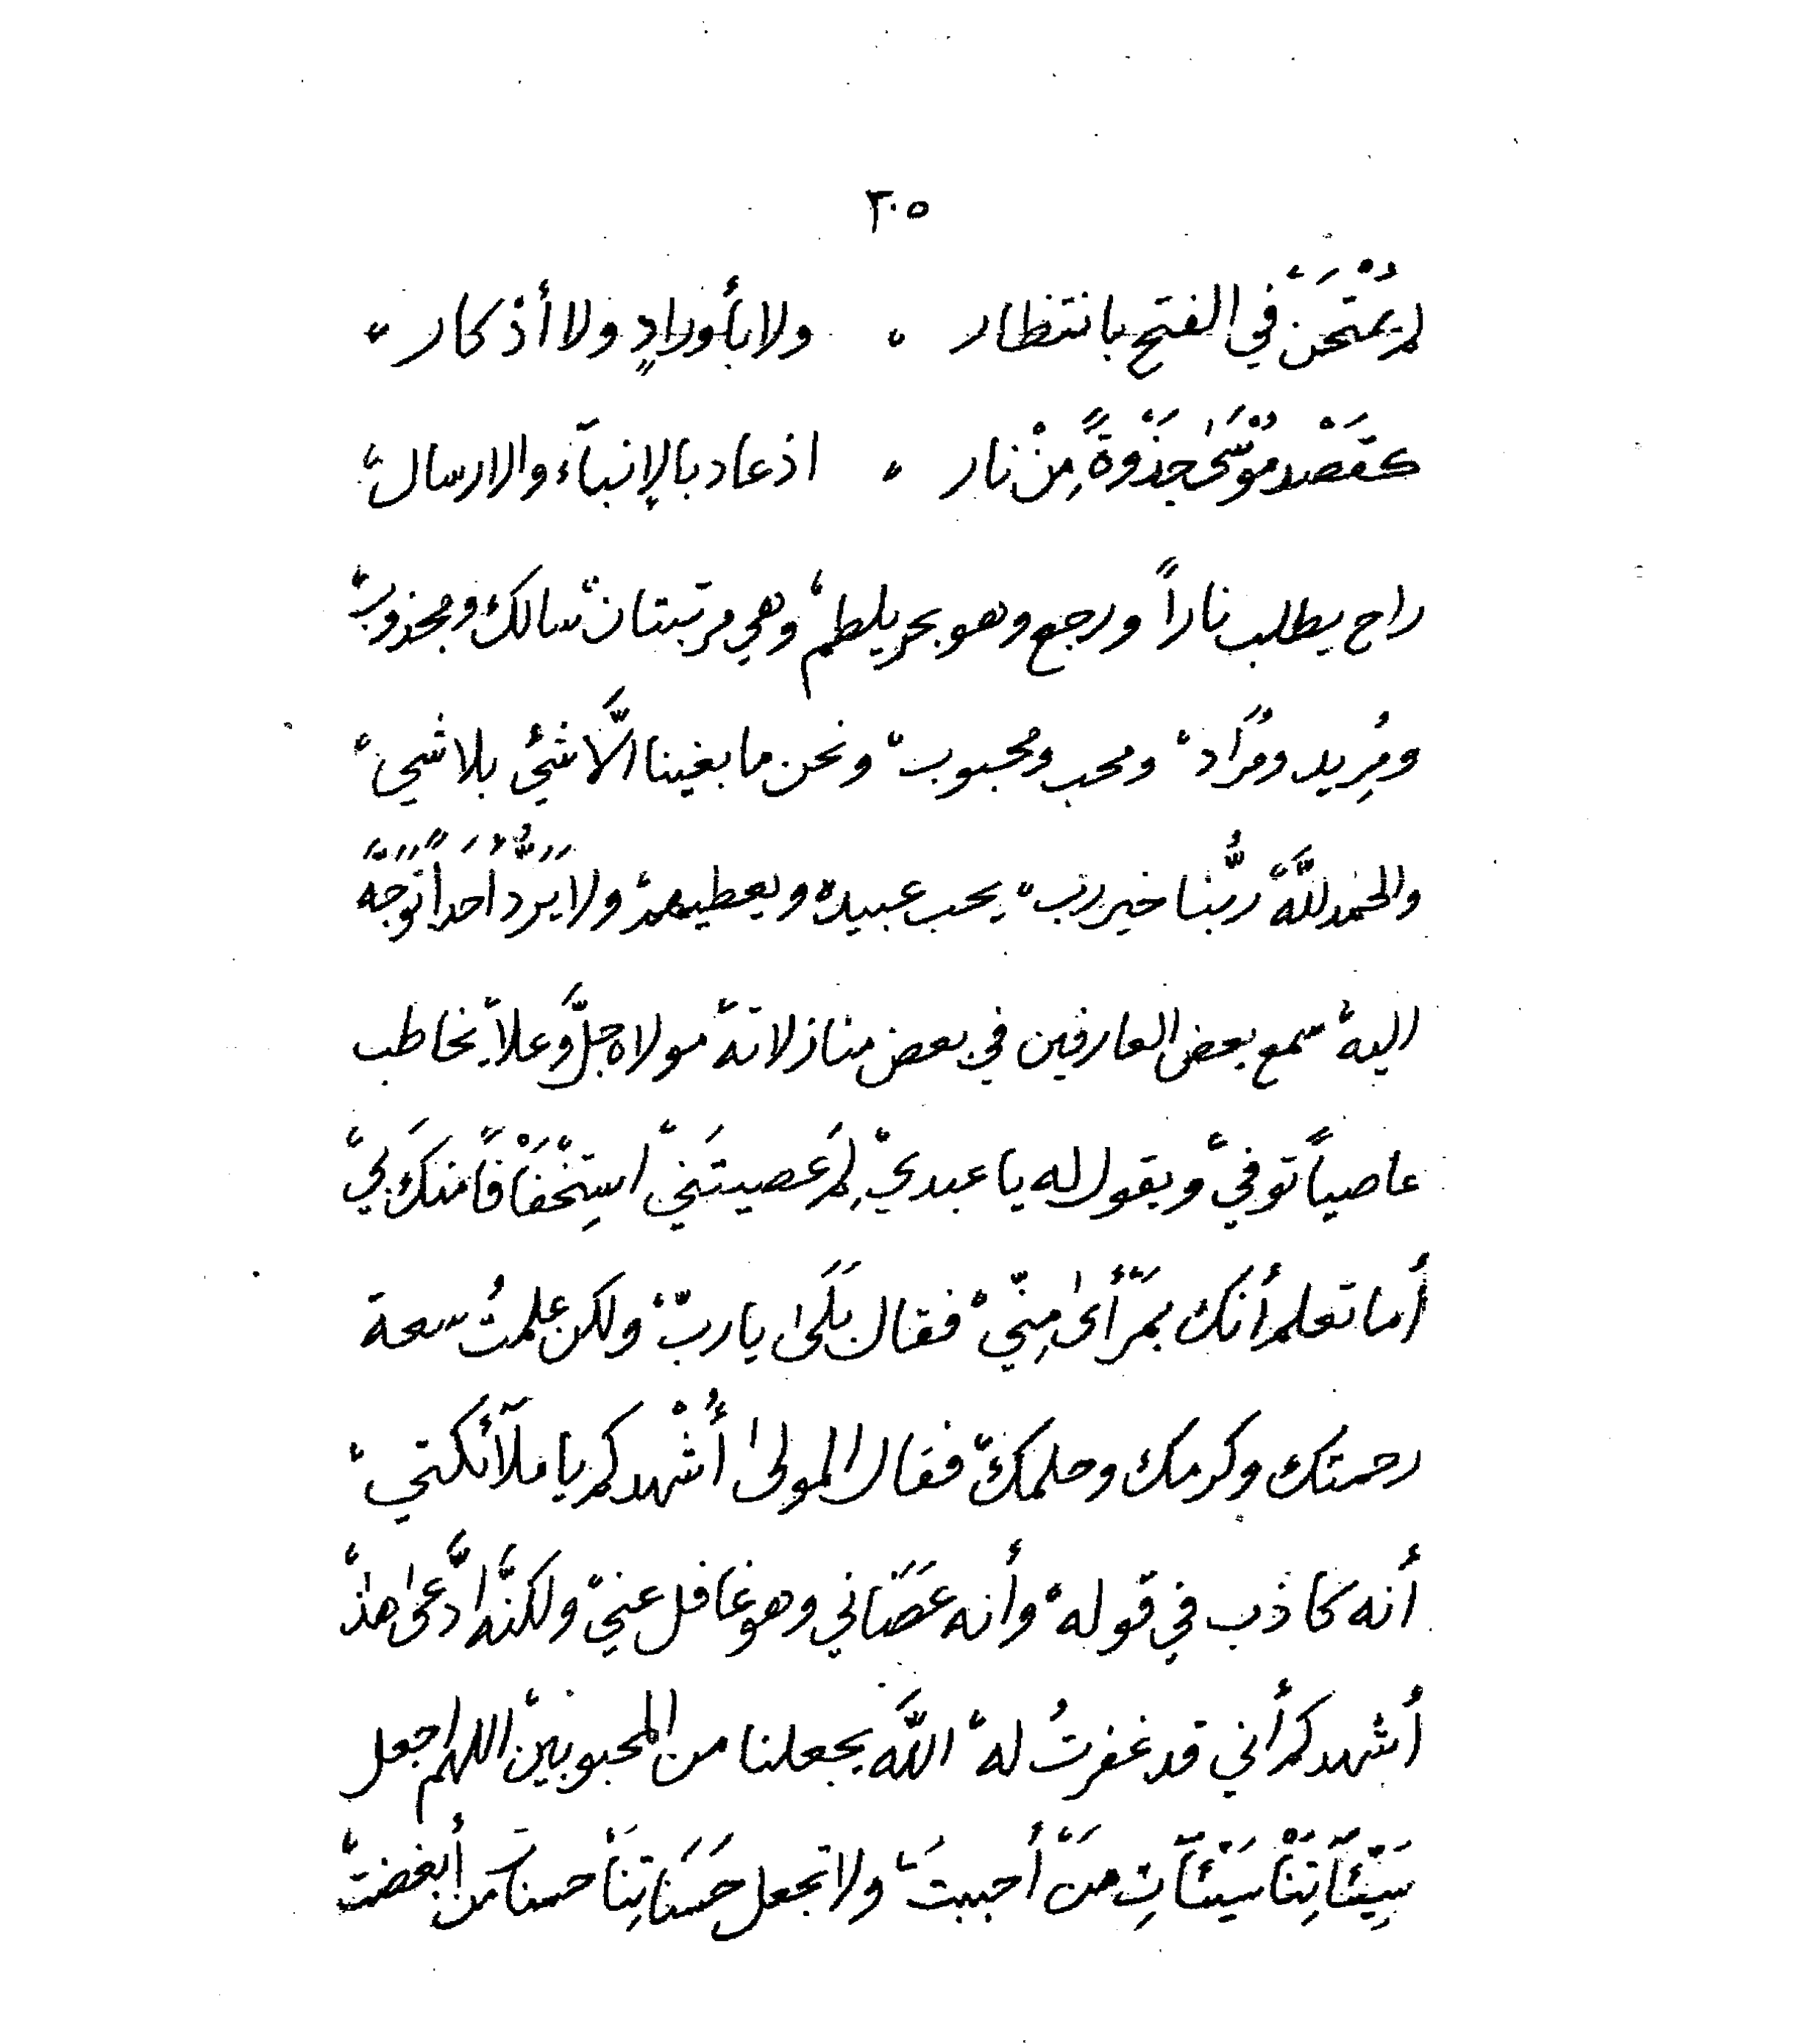 ٣٠٥
لم يُمْتَحَنْ في الفتح بانتظار ، ولا بأورادٍ ولا أذكار ،
كقَصْد مُوْسَىٰ جَذْوَةً مِنْ نار ، اذ عاد بالإنبآء والارسال ،
راح يطلب ناراً ورجع وهو بحر يلطم ، وهي مرتبتان ، سالك ومجذوب ،
ومُرِيد ومُرَاد ، ومحب ومحبوب ، ونحن ما بغينا الَّا شيٌ بلا شي ،
والحمد للَّه ، ربُّنا خير رب ، يحب عبيده ويعطيهم ، ولا يَرُدُّ أحَداً توجَّه
اليه ، سمع بعض العارفين في بعض منازلاته ، مولاه جلَّ وعلا ، يخاطب
عاصياً توفي ، ويقول له يا عبدي ، لِمَ عَصيتَني ، استِخْفَافاً منكَ بي ،
أما تعلم أنك بمَرْأىٰ مِنّي ، فقال بَلَىٰ يا ربّ ، ولكن علمتُ سعة
رحمتك وكرمك وحلمك ، فقال المولىٰ أُشْهدكم يا ملآئكتي ،
أنه كاذب في قوله ، وأنه عَصَاني وهو غافل عني ، ولكنَّه ادَّعىٰ هذا ،
أُشهدكم أني قد غفرتُ له ، اللَّه يجعلنا من المحبوبين ، اللهم اجعل
سَيِّئَاتِنَا سَيِّئَاتِ مَنْ أحببتَ ، ولا تجعل حَسَنَاتِنَا حسنات من أبغضت ،